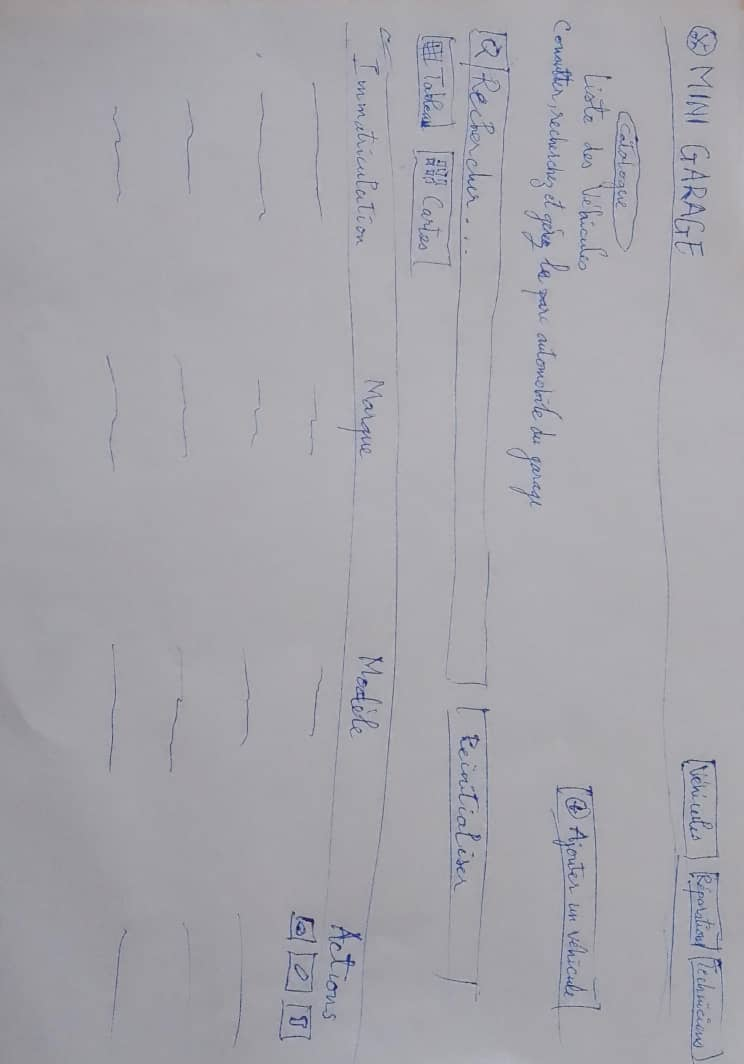 MINI GARAGE
Véhicules Réparation Techniciens
Catalogue
Liste des Véhicules
Consulter, recherchez et gérez le parc automobile du garage
Ajouter un véhicule
Rechercher...
Réinitialiser
Tableau Cartes
Immatriculation Marque Modèle Actions